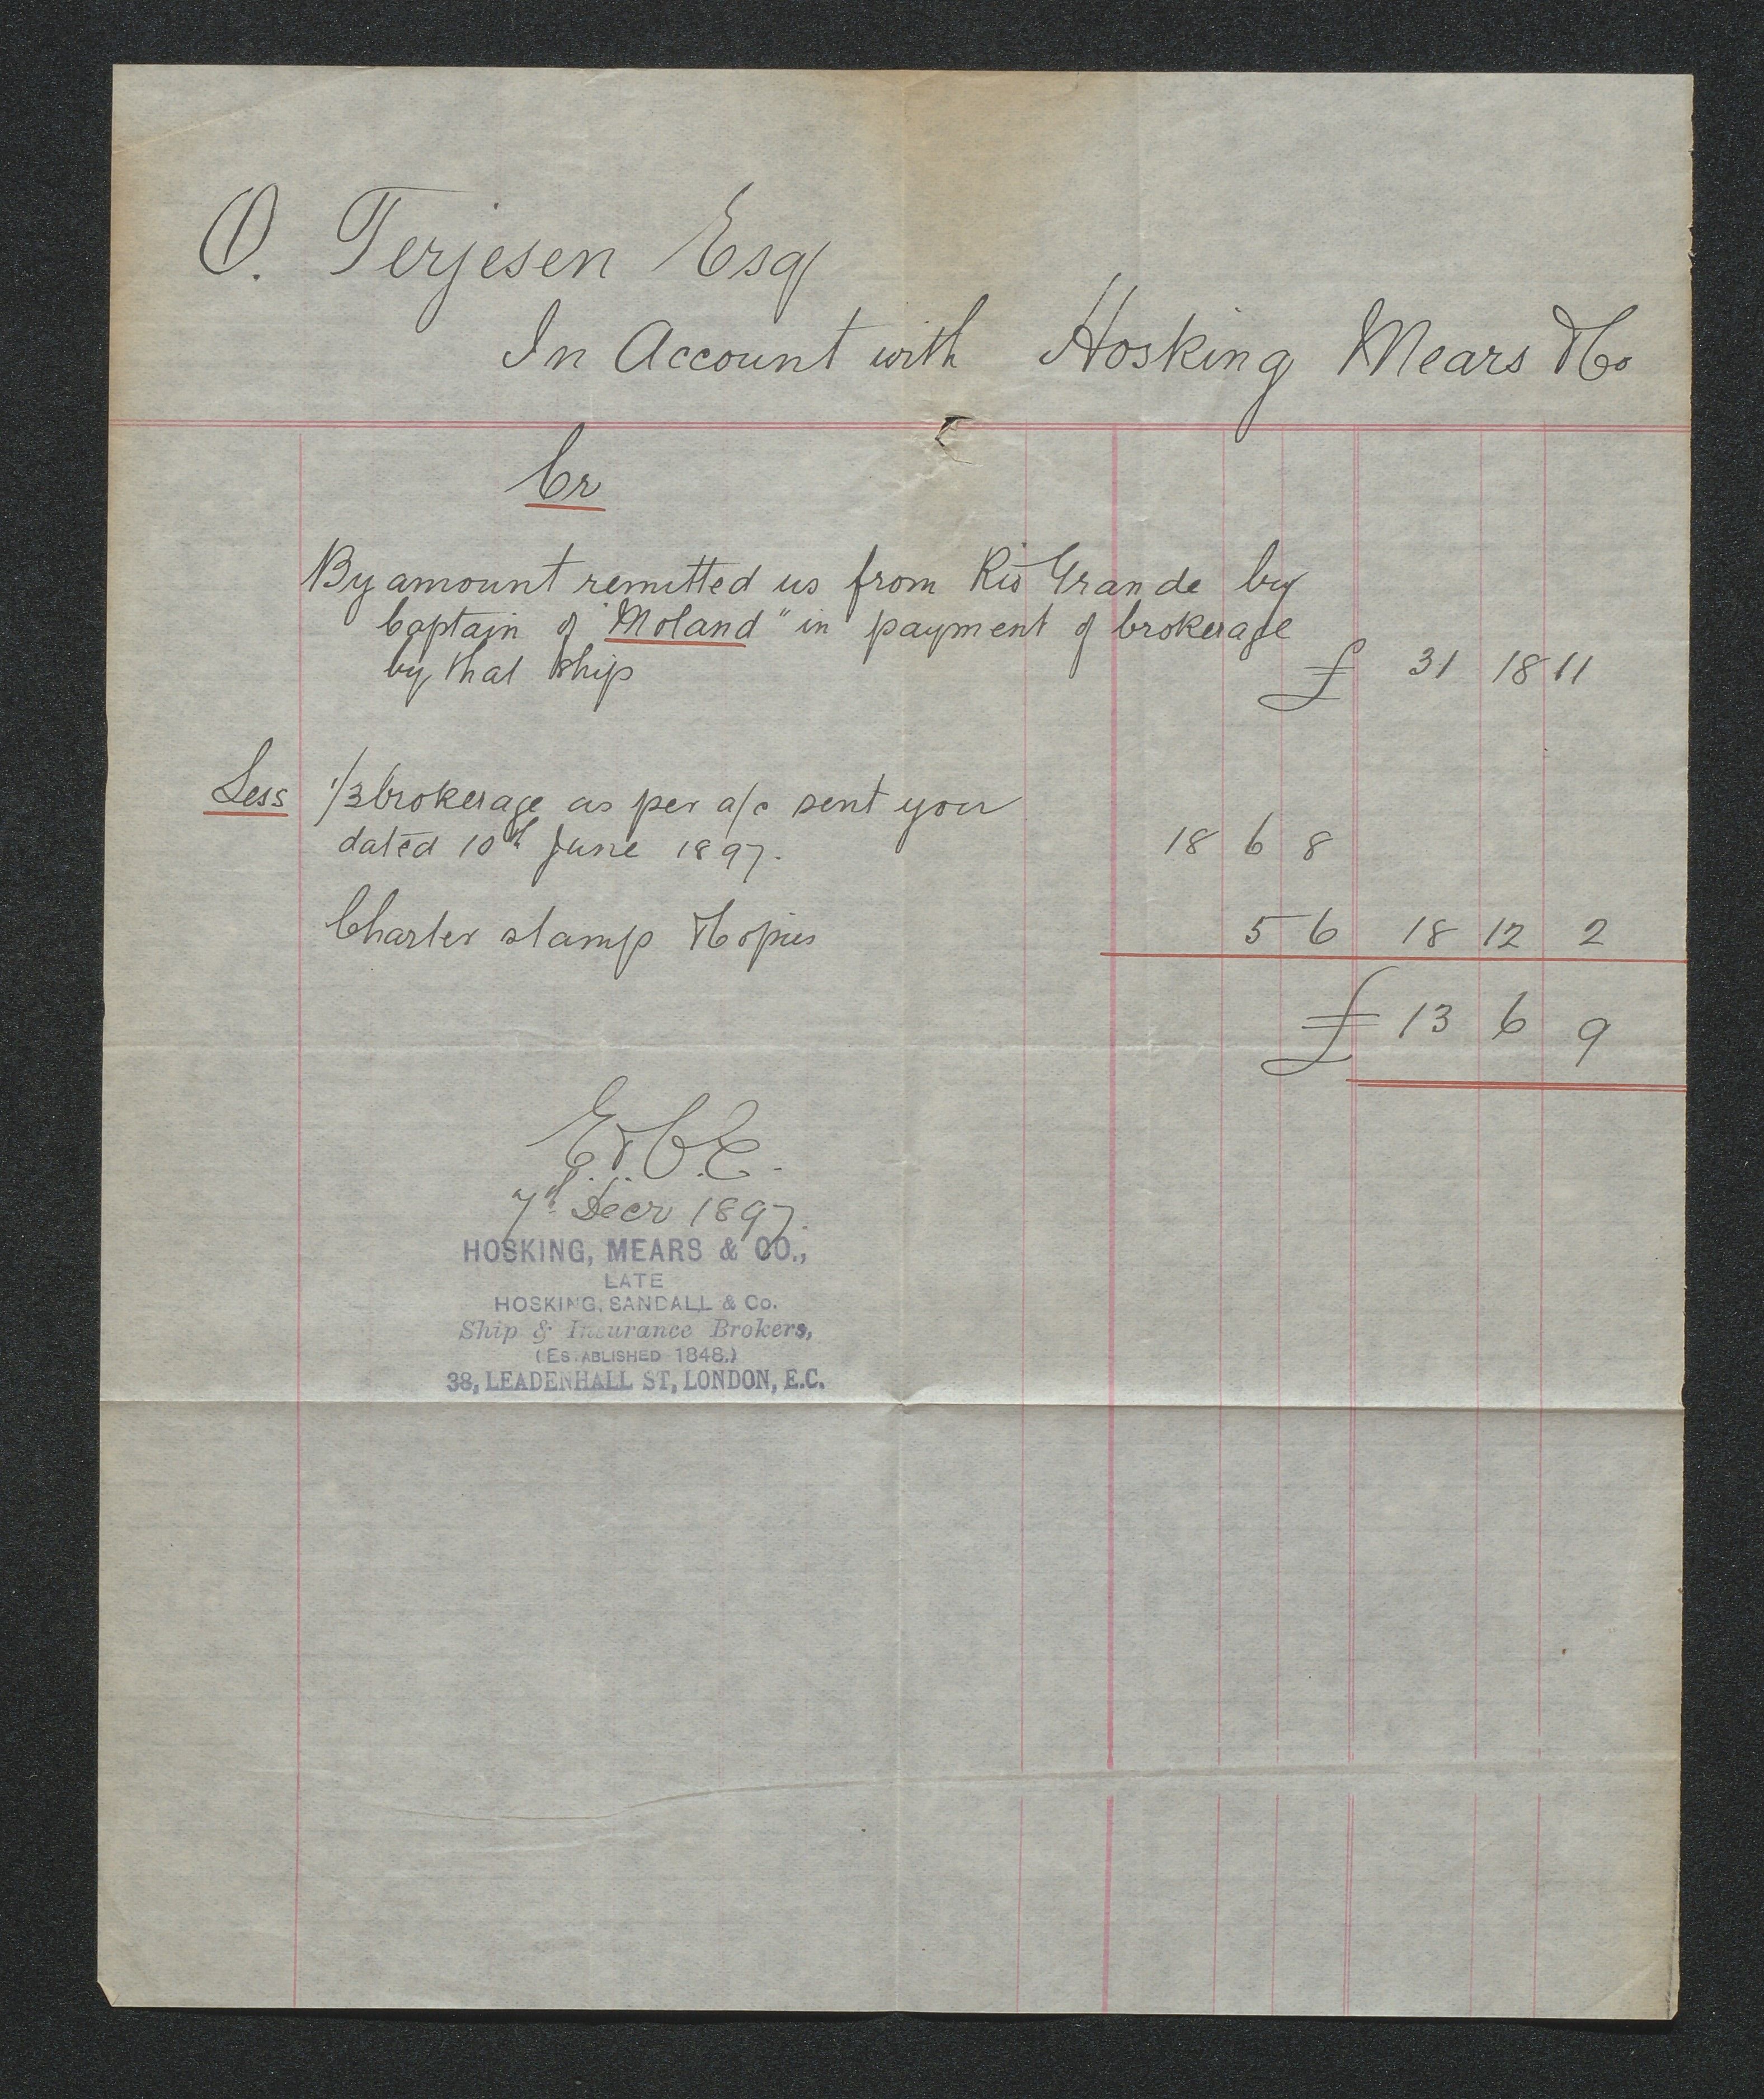 O. Terjesen Esq
In Account with Hosking Mears & Co
Cr
By amount remitted us from Rio Grande by
Captain of "Moland" in payment of brokerage
by that ship £ 31 18 11
Less 1/3 brokerage as per a/c sent you
dated 10th June 1897. 18 6 8
Charter stamp & Copies 5 6 18 12 2
£ 13 6 9
E. & O. E.
7th Decr 1897.
HOSKING, MEARS & CO.,
LATE
HOSKING, SANDALL & Co.
Ship & Insurance Brokers,
(ESTABLISHED 1848.)
38, LEADENHALL ST, LONDON, E.C.